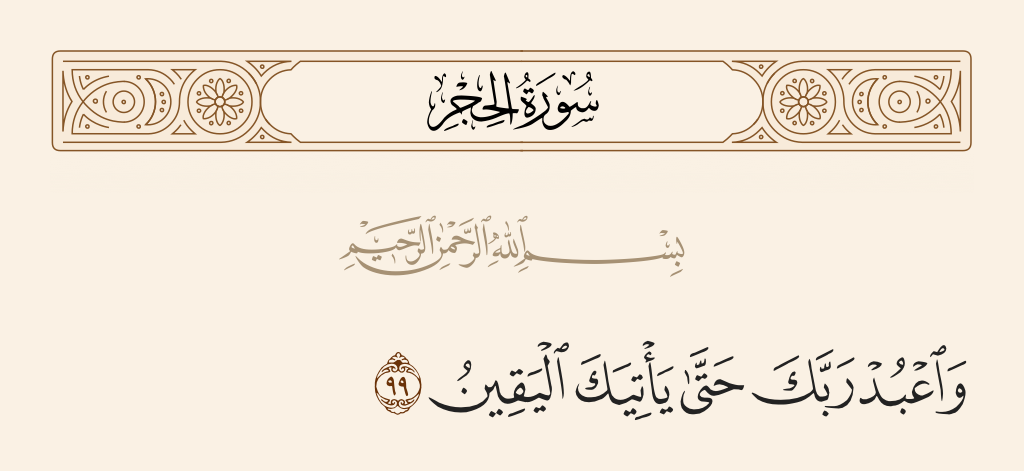 سُورَةُ الحِجْرِ
بِسْمِ ٱللَّهِ ٱلرَّحْمَٰنِ ٱلرَّحِيمِ
وَٱعْبُدْ رَبَّكَ حَتَّىٰ يَأْتِيَكَ ٱلْيَقِينُ ٩٩